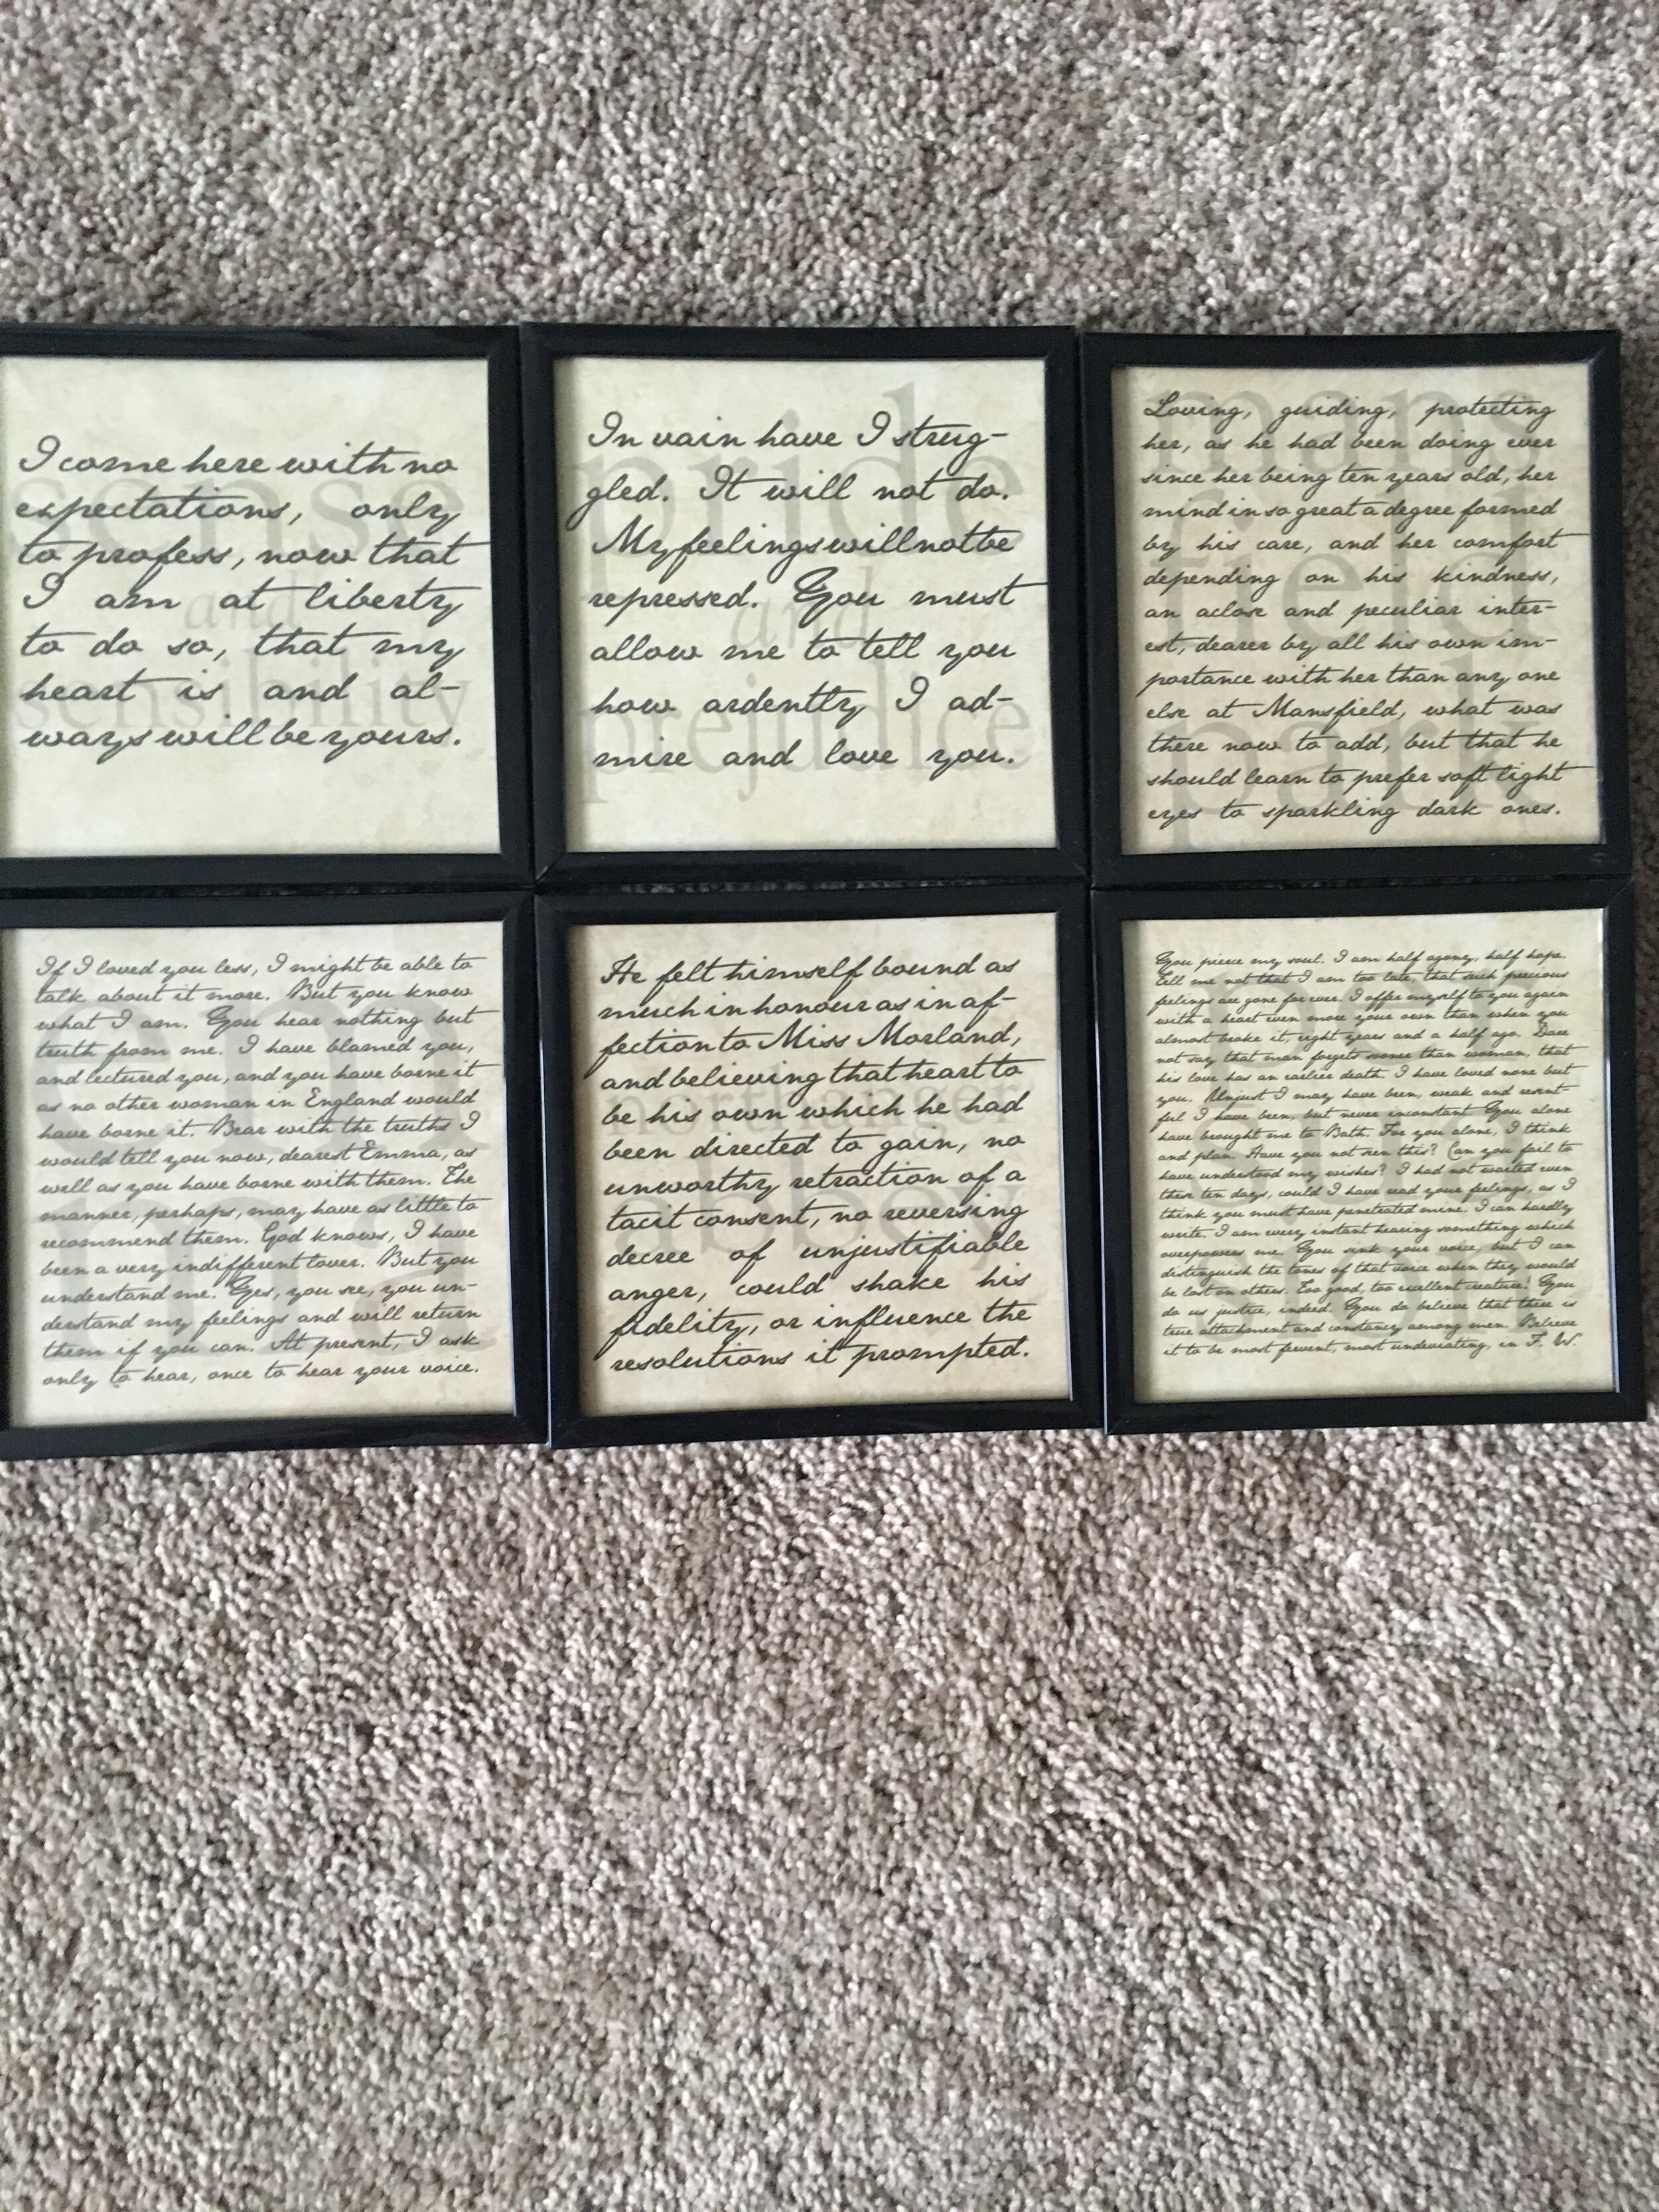 I come here with no
expectations, only
to profess, now that
I am at liberty
to do so, that my
heart is and al-
ways will be yours.
sense
and
sensibility
In vain have I strug-
gled. It will not do.
My feelings will not be
repressed. You must
allow me to tell you
how ardently I ad-
mire and love you.
pride
and
prejudice
Loving, guiding, protecting
her, as he had been doing ever
since her being ten years old, her
mind in so great a degree formed
by his care, and her comfort
depending on his kindness,
an aclose and peculiar inter-
est, dearer by all his own im-
portance with her than any one
else at Mansfield, what was
there now to add, but that he
should learn to prefer soft light
eyes to sparkling dark ones.
If I loved you less, I might be able to
talk about it more. But you know
what I am. You hear nothing but
truth from me. I have blamed you,
and lectured you, and you have borne it
as no other woman in England would
have borne it. Bear with the truths I
would tell you now, dearest Emma, as
well as you have borne with them. The
manner, perhaps, may have as little to
recommend them. God knows, I have
been a very indifferent lover. But you
understand me. Yes, you see, you un-
derstand my feelings and will return
them if you can. At present, I ask
only to hear, once to hear your voice.
He felt himself bound as
much in honour as in af-
fection to Miss Morland,
and believing that heart to
be his own which he had
been directed to gain, no
unworthy retraction of a
tacit consent, no reversing
decree of unjustifiable
anger, could shake his
fidelity, or influence the
resolutions it prompted.
northanger
abbey
You pierce my soul. I am half agony, half hope.
Tell me not that I am too late, that such precious
feelings are gone for ever. I offer myself to you again
with a heart even more your own than when you
almost broke it, eight years and a half ago. Dare
not say that man forgets sooner than woman, that
his love has an earlier death. I have loved none but
you. Unjust I may have been, weak and resent-
ful I have been, but never inconstant. You alone
have brought me to Bath. For you alone, I think
and plan. Have you not seen this? Can you fail to
have understood my wishes? I had not waited even
these ten days, could I have read your feelings, as I
think you must have penetrated mine. I can hardly
write. I am every instant hearing something which
overpowers me. You sink your voice, but I can
distinguish the tones of that voice when they would
be lost on others. Too good, too excellent creature! You
do us justice, indeed. You do believe that there is
true attachment and constancy among men. Believe
it to be most fervent, most undeviating, in F. W.